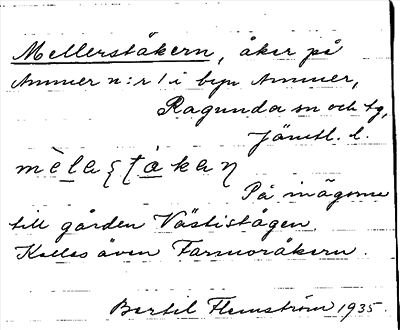 Mellerståkern, åker på
Ammer n:r 1 i byn Ammer,
Ragunda sn och tg,
Jämtl. l.
På inägorna
till gården Västistågen
Kallas även Farmoråkern.
Bertil Flemström 1935.